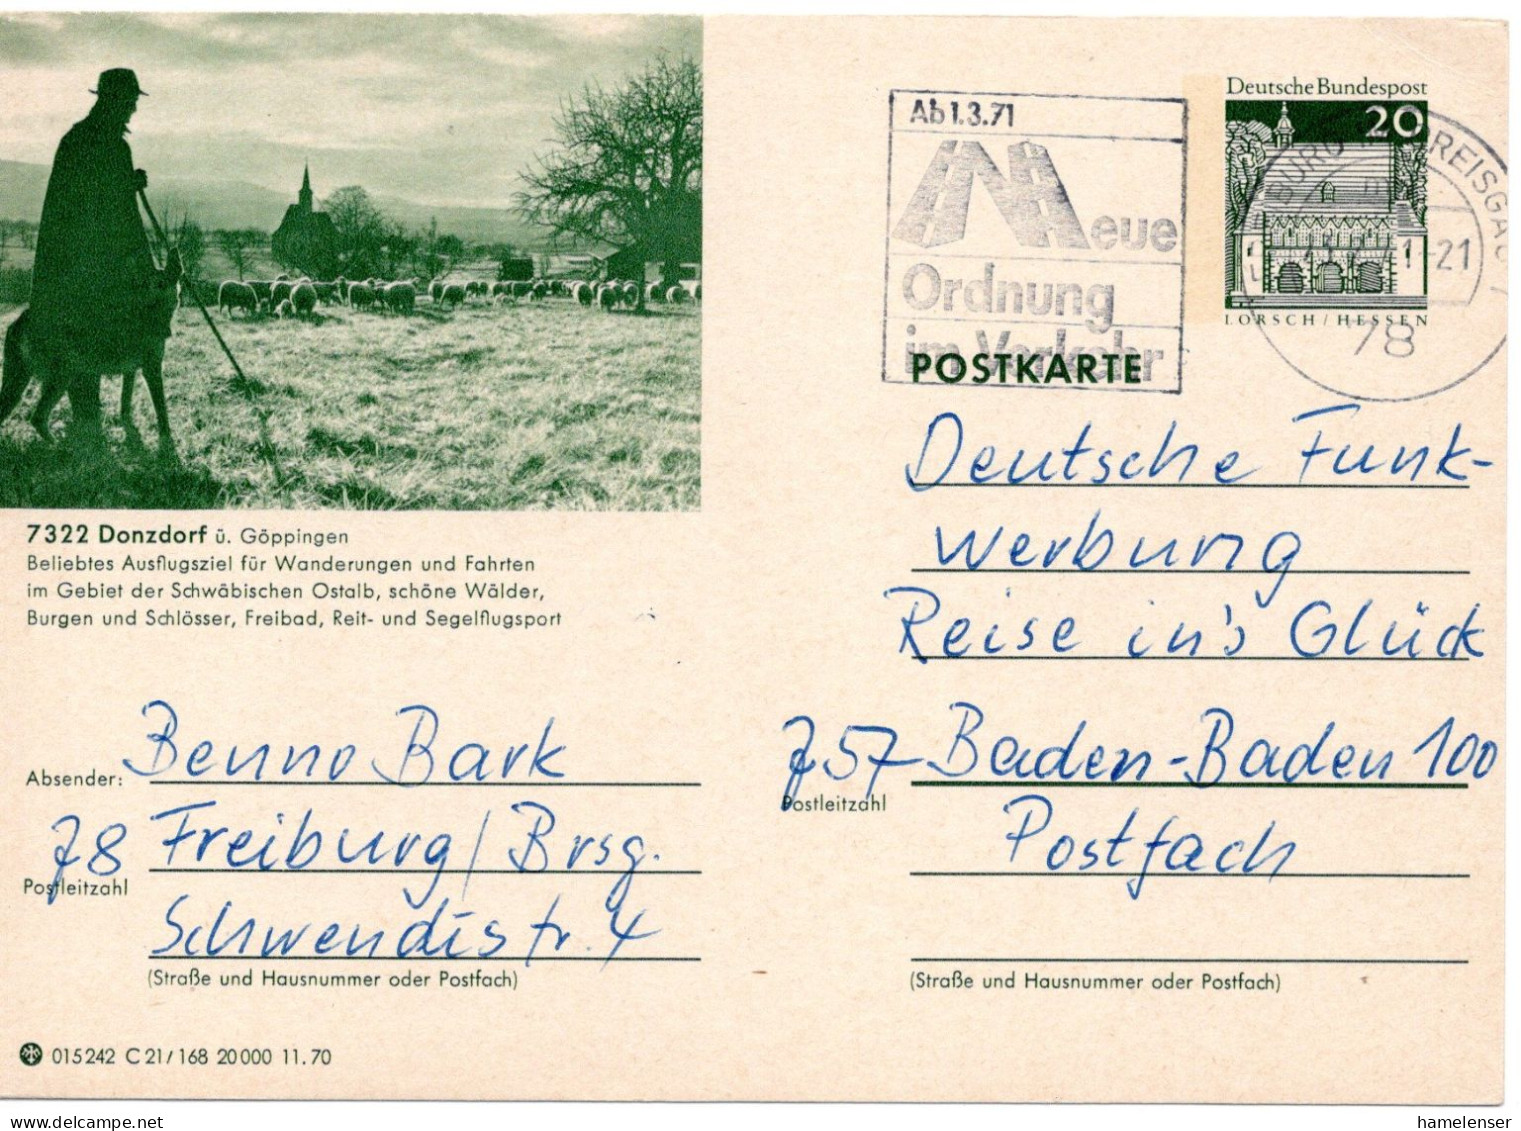 Deutsche Bundespost
20
LORSCH / HESSEN
Ab 1.3.71
Neue
Ordnung
im Verkehr
BREISGAU
21
78
POSTKARTE
Deutsche Funk-
werbung
Reise in's Glück
757 Baden-Baden 100
Postleitzahl
Postfach
(Straße und Hausnummer oder Postfach)
7322 Donzdorf ü. Göppingen
Beliebtes Ausflugsziel für Wanderungen und Fahrten
im Gebiet der Schwäbischen Ostalb, schöne Wälder,
Burgen und Schlösser, Freibad, Reit- und Segelflugsport
Absender: Benno Bark
78 Freiburg/Brsg.
Postleitzahl
Schwendistr. 4
(Straße und Hausnummer oder Postfach)
015242 C 21/168 20 000 11.70
www.delcampe.net
hamelenser